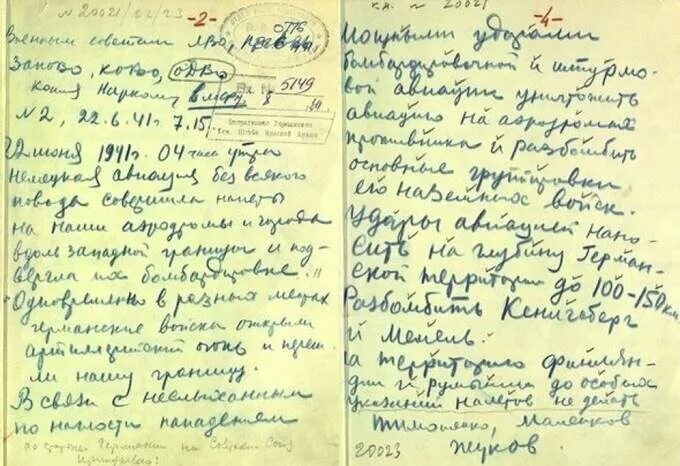 № 20021
-2-
Военным советам ЛВО, ПрибОВО,
ЗапОВО, КОВО, ОДВО
копия Наркому в.м.
Вх. № 5149
Оперативное Управление
Ген. Штаба Красной Армии
№ 2, 22.6.41 г. 7.15.
22 июня 1941 г. 04 часа утра
немецкая авиация без всякого
повода совершила налеты
на наши аэродромы и города
вдоль западной границы и под-
вергла их бомбардировке.
Одновременно в разных местах
германские войска открыли
артиллерийский огонь и переш-
ли нашу границу.
В связи с неслыханным
по наглости нападением
со стороны Германии на Советский Союз
-4-
Мощными ударами
бомбардировочной и штурмо-
вой авиации уничтожить
авиацию на аэродромах
противника и разбомбить
основные группировки
его наземных войск.
Удары авиацией нано-
сить на глубину Герман-
ской территории до 100-150 км.
Разбомбить Кенигсберг
и Мемель.
На территорию Финлян-
дии и Румынии до особых
указаний налетов не делать
Тимошенко, Маленков
Жуков.
20023